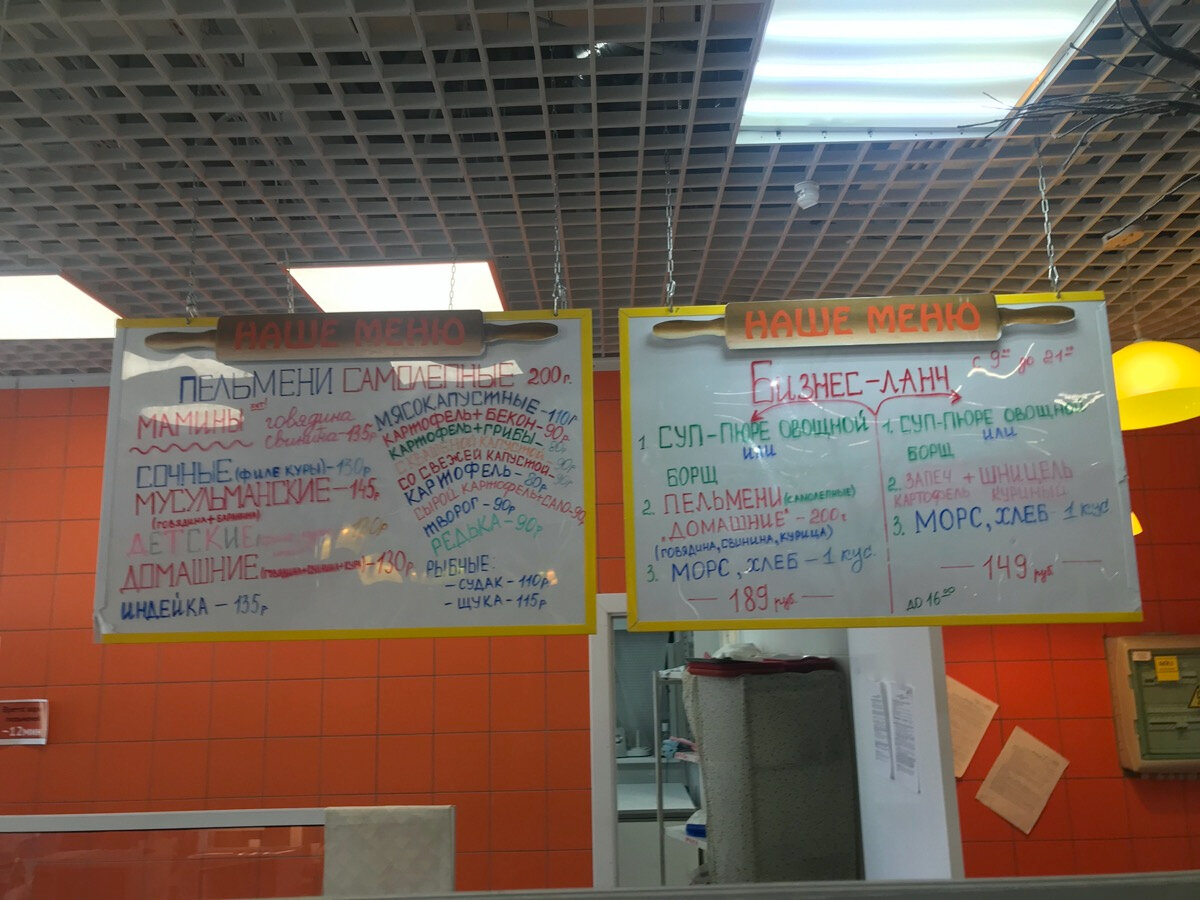 НАШЕ МЕНЮ
ПЕЛЬМЕНИ САМОЛЕПНЫЕ 200г.
МАМИНЫ говядина
свинина-135р
СОЧНЫЕ (филе куры)-130р
МУСУЛЬМАНСКИЕ-145р
(говядина+баранина)
ДЕТСКИЕ
ДОМАШНИЕ (говядина+свинина+кура)-130р
ИНДЕЙКА-135р
МЯСОКАПУСТНЫЕ-110г
КАРТОФЕЛЬ+БЕКОН-90р
КАРТОФЕЛЬ+ГРИБЫ-
КАПУСТОЙ
СО СВЕЖЕЙ КАПУСТОЙ-
КАРТОФЕЛЬ-80р
СЫРОЙ КАРТОФЕЛЬ+САЛО-90р
ТВОРОГ-90р
РЕДЬКА-90г
РЫБНЫЕ:
-СУДАК-110р
-ЩУКА-115р
НАШЕ МЕНЮ
БИЗНЕС-ЛАНЧ с 9⁰⁰ до 21⁰⁰
1 СУП-ПЮРЕ ОВОЩНОЙ
ИЛИ
БОРЩ
2. ПЕЛЬМЕНИ (САМОЛЕПНЫЕ)
"ДОМАШНИЕ"-200г
(ГОВЯДИНА, СВИНИНА, КУРИЦА)
3. МОРС, ХЛЕБ-1 кус.
— 189 руб. —
1. СУП-ПЮРЕ ОВОЩНОЙ
ИЛИ
БОРЩ
2. ЗАПЕЧ + ШНИЦЕЛЬ
КАРТОФЕЛЬ КУРИНЫЙ
3. МОРС, ХЛЕБ-1 кус
— 149 руб —
ДО 16⁰⁰
~12 мин